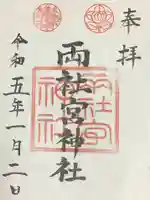 奉拝
両社宮神社
令和五年一月二日